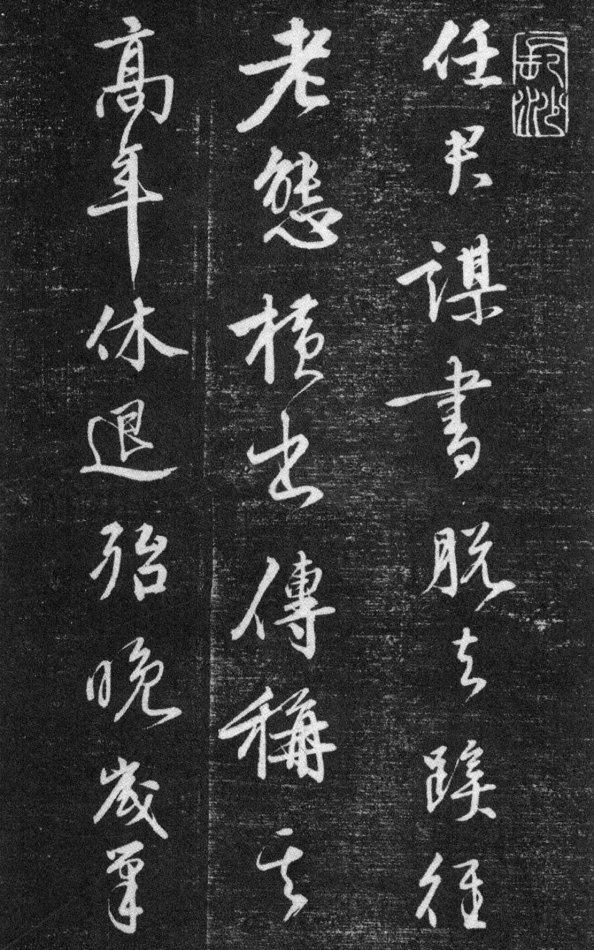 任君謀書脫去蹊徑
老態橫出傳稱其
高年休退殆晚歲筆